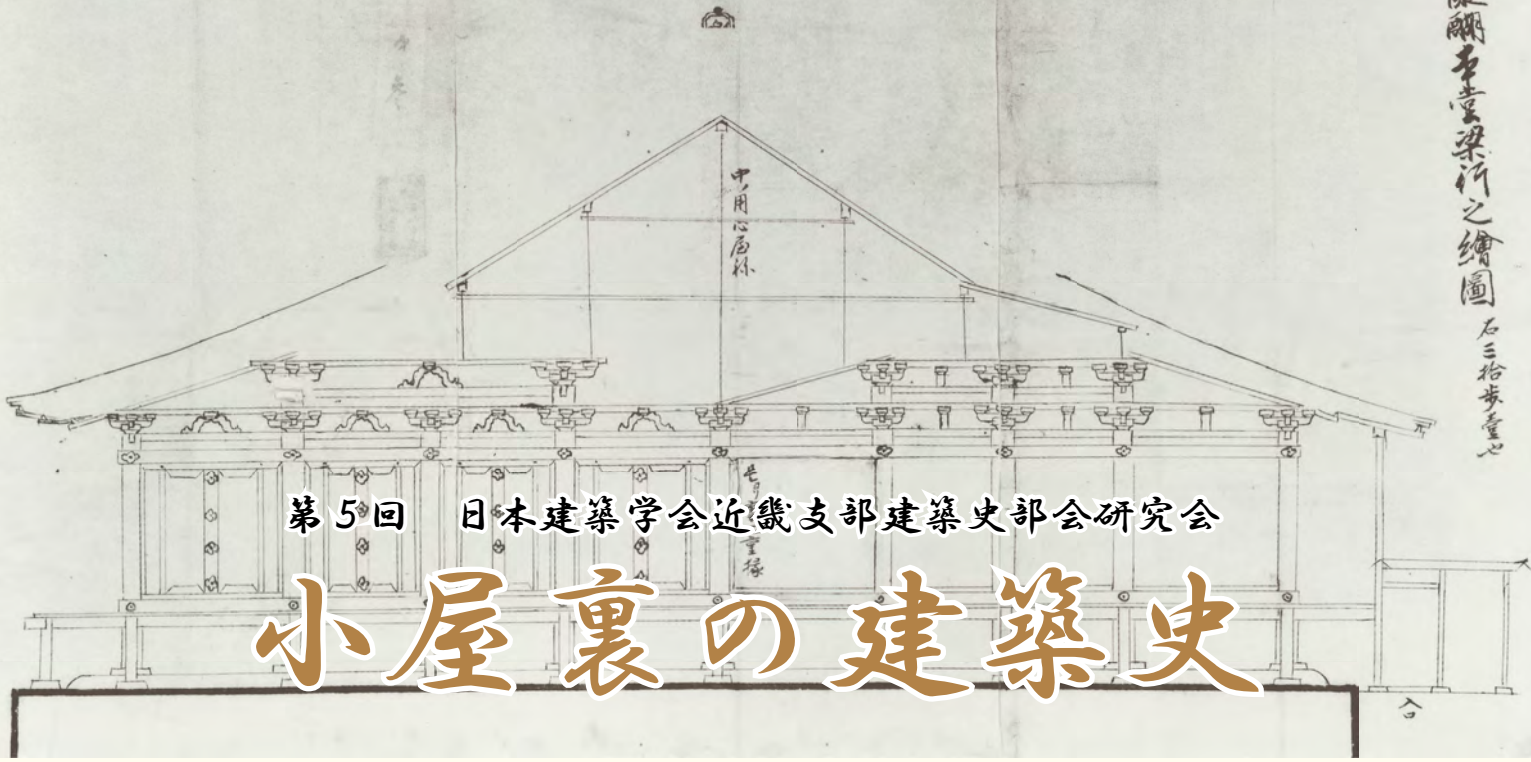 醍醐本堂梁行之繪圖
右三拾歩壹也
中ノ用心屋祢
第5回 日本建築学会近畿支部建築史部会研究会
小屋裏の建築史
入口